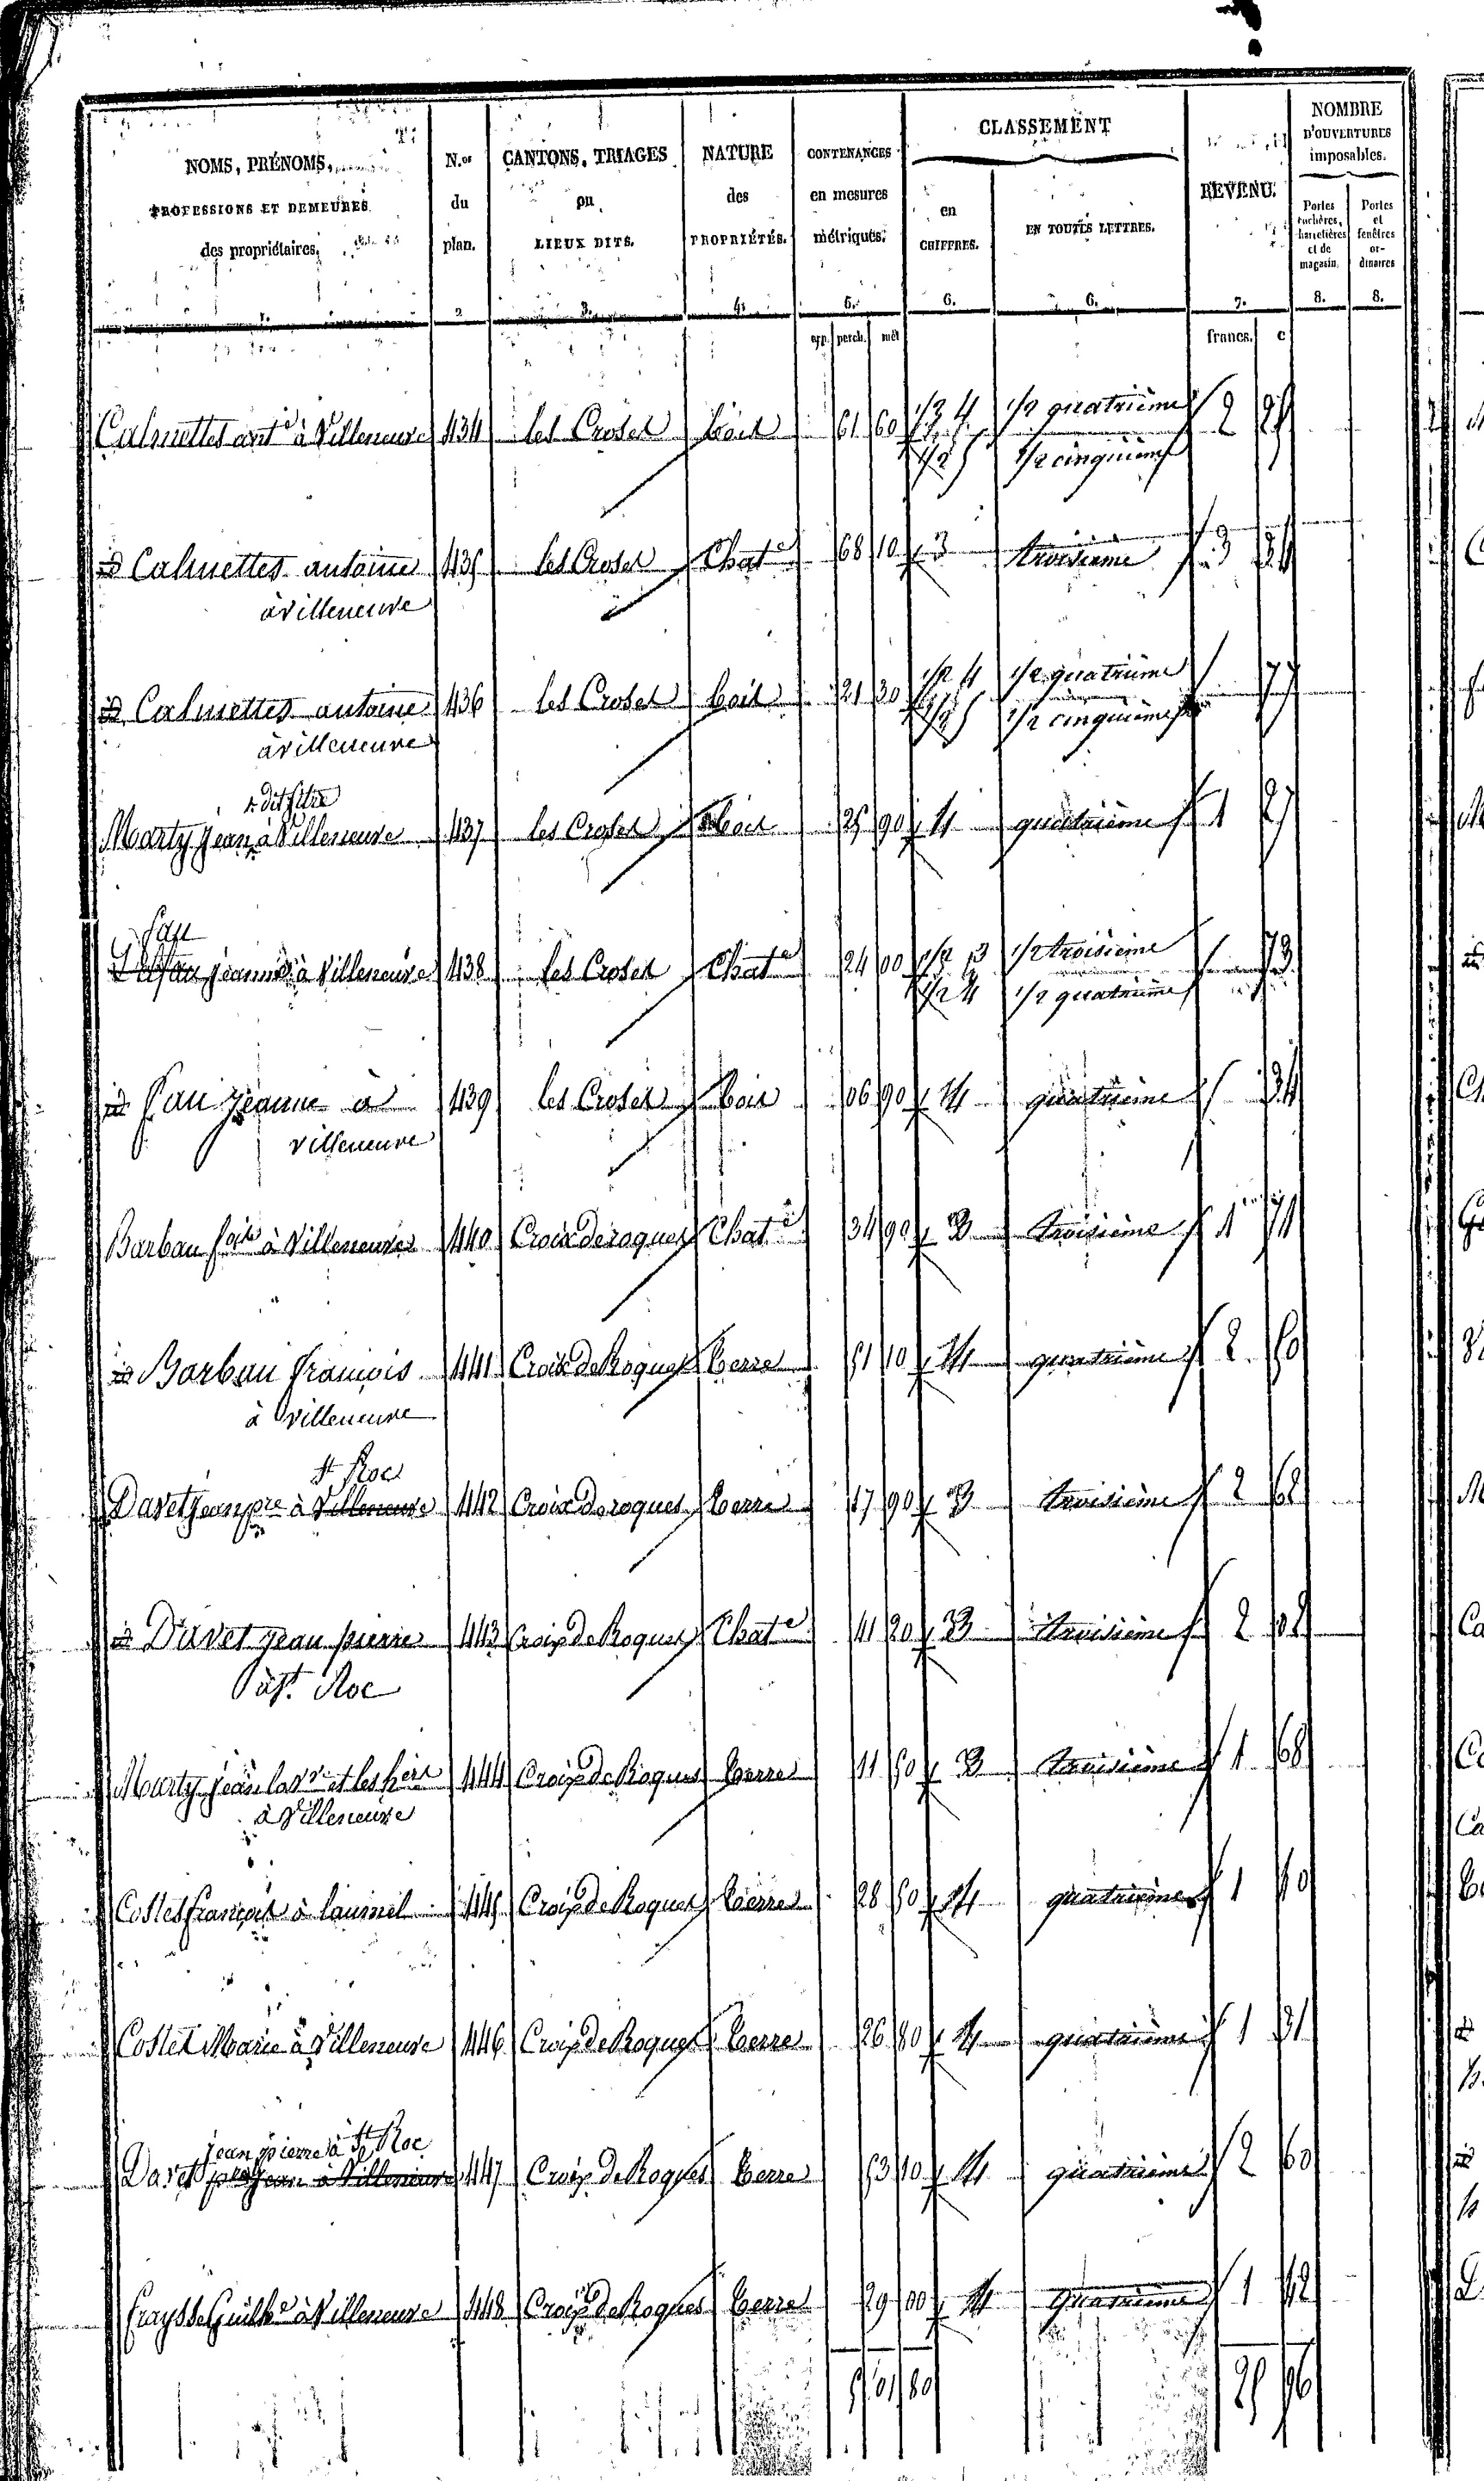 NOMS, PRÉNOMS, PROFESSIONS ET DEMEURES des propriétaires. | N.os du plan. | CANTONS, TRIAGES ou LIEUX DITS. | NATURE des PROPRIÉTÉS. | CONTENANCES en mesures métriques. | CLASSEMENT en CHIFFRES. | EN TOUTES LETTRES. | REVENU. | NOMBRE D'OUVERTURES imposables. Portes cochères, charretières et de magasin. | Portes et fenêtres ordinaires
1. 2 3. 4. 5. 6. 6. 7. 8. 8.
arp. perch. mèt francs. c
Calmettes ant.e à Villeneuve 434 les Croses bois 61 60 1/2 4 1/2 quatrième 2
1/2 5 1/2 cinquième
id Calmettes antoine 435 les Croses Chat.e 68 10 3 troisieme 3 34
à villeneuve
id Calmettes antoine 436 les Croses bois 21 30 1/2 4 1/2 quatrième 77
à villeneuve 1/2 5 1/2 cinquième
Marty jean à Villeneuve 437 les Croses bois 25 90 4 quatrième 1 27
fau
jeanne à Villeneuve 438 les Croses Chat.e 24 00 1/2 3 1/2 troisième 73
1/2 4 1/2 quatrième
id fau jeanne à 439 les Croses bois 06 90 4 quatrième 34
villeneuve
Barbau f.ois à Villeneuve 440 Croix de roques Chat.e 34 90 3 troisième 1 71
id Barbau françois 441 Croix de Roques terre 51 10 4 quatrième 2 50
à villeneuve
St Roc
Davet jean pre à Villeneuve 442 Croix de roques terre 17 90 3 troisième 2 62
id Davet jean pierre 443 Croix de Roques Chat.e 41 20 3 troisième 2 02
à St. Roc
Marty jean la v.ve et les hers 444 Croix de Roques terre 11 50 3 troisième 1 68
à Villeneuve
Costes françois à 445 Croix de Roques terre 28 50 4 quatrième 1 40
Costes Marie à Villeneuve 446 Croix de Roques terre 26 80 4 quatrième 1 31
jean pierre à St Roc
Davet jean à Villeneuve 447 Croix de Roques terre 53 10 4 quatrième 2 60
fraysse Guill.e à Villeneuve 448 Croix de Roques terre 29 00 4 quatrième 1 42
5 01 80 25 96